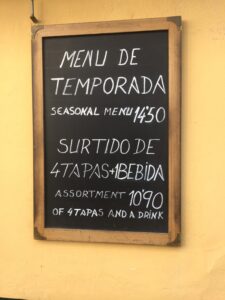 MENU DE
TEMPORADA
SEASONAL MENU 14'50
SURTIDO DE
4TAPAS+1BEBIDA
ASSORTMENT 10'90
OF 4TAPAS AND A DRINK